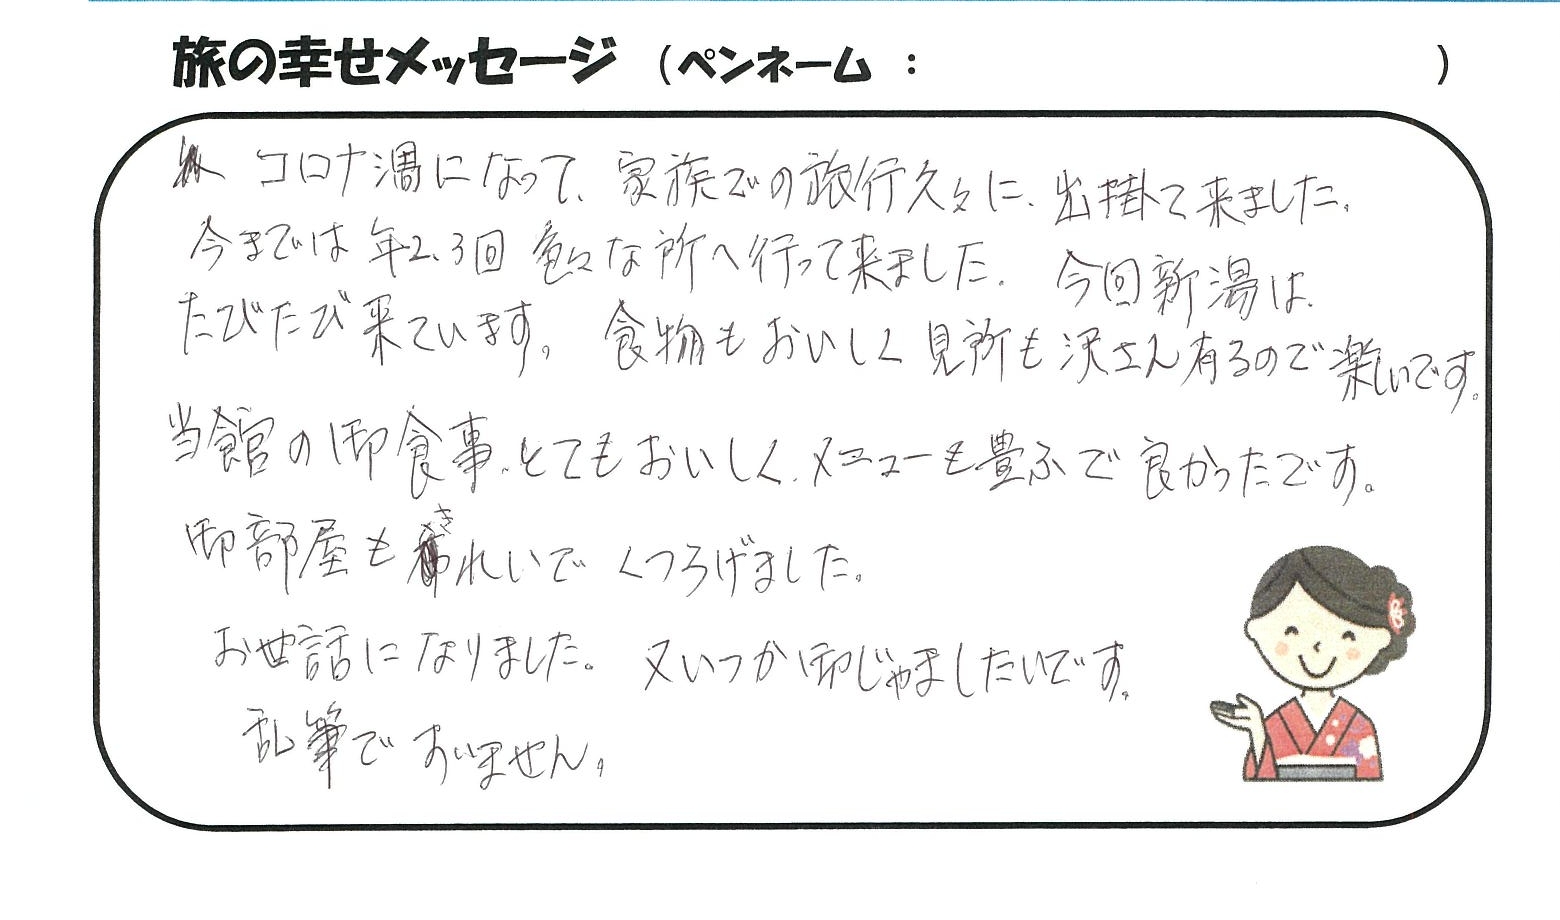 旅の幸せメッセージ (ペンネーム : )
コロナ渦になって、家族での旅行久々に、出掛て来ました。
今までは年2、3回 色々な所へ行って来ました。今回新潟は、
たびたび来ています。食物もおいしく見所も沢さん有るので楽しいです。
当館の御食事、とてもおいしく、メニューも豊ふで良かったです。
御部屋もきれいでくつろげました。
お世話になりました。又いつか御じゃましたいです。
乱筆ですいません。